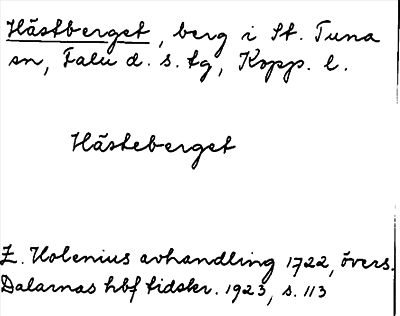 Hästberget, berg i St. Tuna
sn, Falu d. s. tg, Kopp. l.
Hästeberget
E. Holenius avhandling 1722, övers.
Dalarnas hbf tidskr. 1923, s. 113